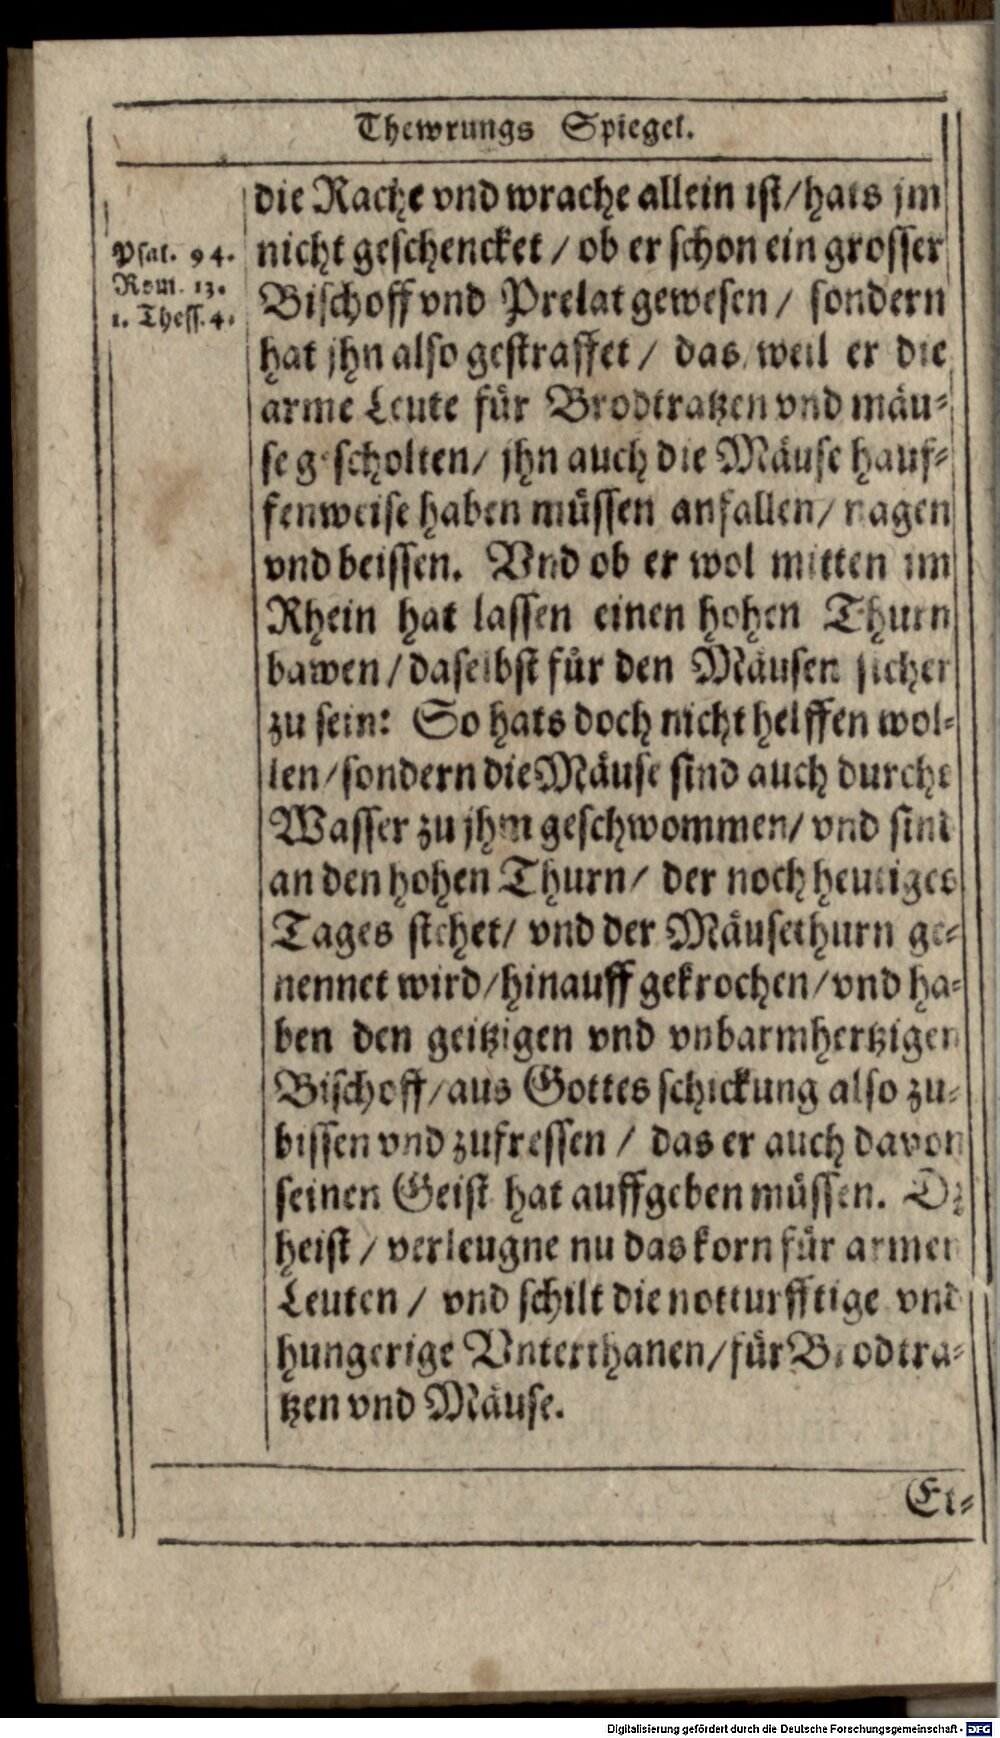 Thewrungs Spiegel.
Psal. 94.
Rom. 13.
1. Thess. 4.
die Rache vnd wrache allein ist/hats jm
nicht geschencket / ob er schon ein grosser
Bischoff vnd Prelat gewesen / sondern
hat jhn also gestraffet / das weil er die
arme Leute für Brodtratzen vnd mäu-
se gescholten/ jhn auch die Mäuse hauf-
fenweise haben müssen anfallen/ nagen
vnd beissen. Vnd ob er wol mitten im
Rhein hat lassen einen hohen Thurn
bawen/daselbst für den Mäusen sicher
zu sein: So hats doch nicht helffen wol-
len/sondern die Mäuse sind auch durchs
Wasser zu jhm geschwommen/ vnd sind
an den hohen Thurn/ der noch heutiges
Tages stehet/ vnd der Mäusethurn ge-
nennet wird/hinauff gekrochen/vnd ha-
ben den geitzigen vnd vnbarmhertzigen
Bischoff/aus Gottes schickung also zu-
bissen vnd zufressen / das er auch davon
seinen Geist hat auffgeben müssen. Dz
heist / verleugne nu das korn für armen
Leuten / vnd schilt die notturfftige vnd
hungerige Vnterthanen/für Brodtra-
tzen vnd Mäuse.
Et-
Digitalisierung gefördert durch die Deutsche Forschungsgemeinschaft - DFG